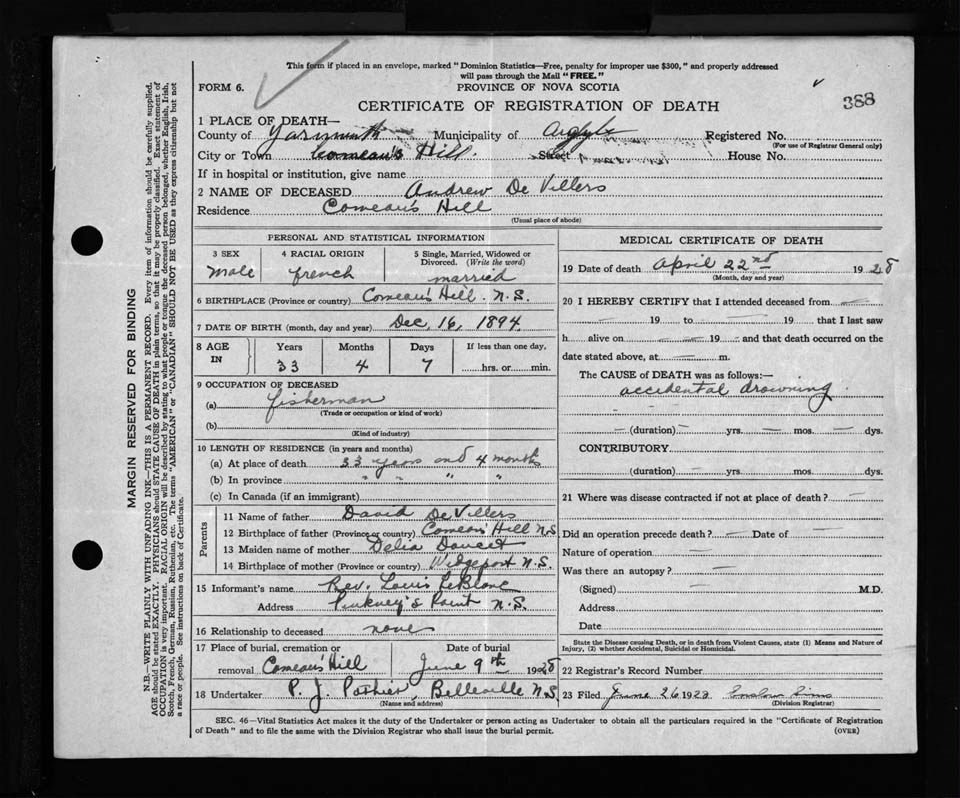 This form if placed in an envelope, marked "Dominion Statistics—Free, penalty for improper use $300," and properly addressed
will pass through the Mail "FREE."
FORM 6.
PROVINCE OF NOVA SCOTIA
388
CERTIFICATE OF REGISTRATION OF DEATH
1 PLACE OF DEATH—
County of Yarmouth Municipality of Argyle Registered No.
(For use of Registrar General only)
City or Town Comeau's Hill. Street House No.
If in hospital or institution, give name
2 NAME OF DECEASED Andrew De Villers
Residence Comeau's Hill
(Usual place of abode)
PERSONAL AND STATISTICAL INFORMATION
3 SEX
male
4 RACIAL ORIGIN
french
5 Single, Married, Widowed or
Divorced. (Write the word)
married
6 BIRTHPLACE (Province or country) Comeau's Hill. N.S.
7 DATE OF BIRTH (month, day and year) Dec. 16, 1894
8 AGE IN
Years Months Days If less than one day,
33 4 7 hrs. or min.
9 OCCUPATION OF DECEASED
(a) fisherman
(Trade or occupation or kind of work)
(b)
(Kind of industry)
10 LENGTH OF RESIDENCE (in years and months)
(a) At place of death 33 years and 4 months
(b) In province " " " "
(c) In Canada (if an immigrant)
Parents
11 Name of father David De Villers
12 Birthplace of father (Province or country) Comeau's Hill N.S
13 Maiden name of mother Delia Doucet
14 Birthplace of mother (Province or country) Wedgeport N.S.
15 Informant's name Rev. Louis LeBlanc
Address Pinkney's Point N.S.
16 Relationship to deceased none
17 Place of burial, cremation or Date of burial
removal Comeau's Hill June 9th 1928
18 Undertaker P. J. Pothier, Belleville N.S.
(Name and address)
MEDICAL CERTIFICATE OF DEATH
19 Date of death April 22nd 1928
(Month, day and year)
20 I HEREBY CERTIFY that I attended deceased from —
— 19 to — 19 that I last saw
h alive on — 19 — and that death occurred on the
date stated above, at — m.
The CAUSE of DEATH was as follows:—
accidental drowning
— (duration) — yrs. — mos. — dys.
CONTRIBUTORY.
(duration) — yrs. — mos. — dys.
21 Where was disease contracted if not at place of death? —
Did an operation precede death? — Date of
Nature of operation —
Was there an autopsy? —
(Signed) — M.D.
Address
Date
State the Disease causing Death, or in death from Violent Causes, state (1) Means and Nature of
Injury, (2) whether Accidental, Suicidal or Homicidal.
22 Registrar's Record Number
23 Filed June 26 1928
(Division Registrar)
SEC. 46—Vital Statistics Act makes it the duty of the Undertaker or person acting as Undertaker to obtain all the particulars required in the "Certificate of Registration
of Death" and to file the same with the Division Registrar who shall issue the burial permit.
(OVER)
MARGIN RESERVED FOR BINDING
N.B.—WRITE PLAINLY WITH UNFADING INK—THIS IS A PERMANENT RECORD. Every item of information should be carefully supplied.
AGE should be stated EXACTLY. PHYSICIANS should STATE CAUSE OF DEATH in plain terms, so that it may be properly classified. Exact statement of
OCCUPATION is very important. RACIAL ORIGIN will be described by stating to what people or tongue the deceased person belonged, whether English, Irish,
Scotch, French, German, Russian, Ruthenian, etc. The terms "AMERICAN" or "CANADIAN" SHOULD NOT BE USED as they express citizenship but not
a race or people. See instructions on back of Certificate.